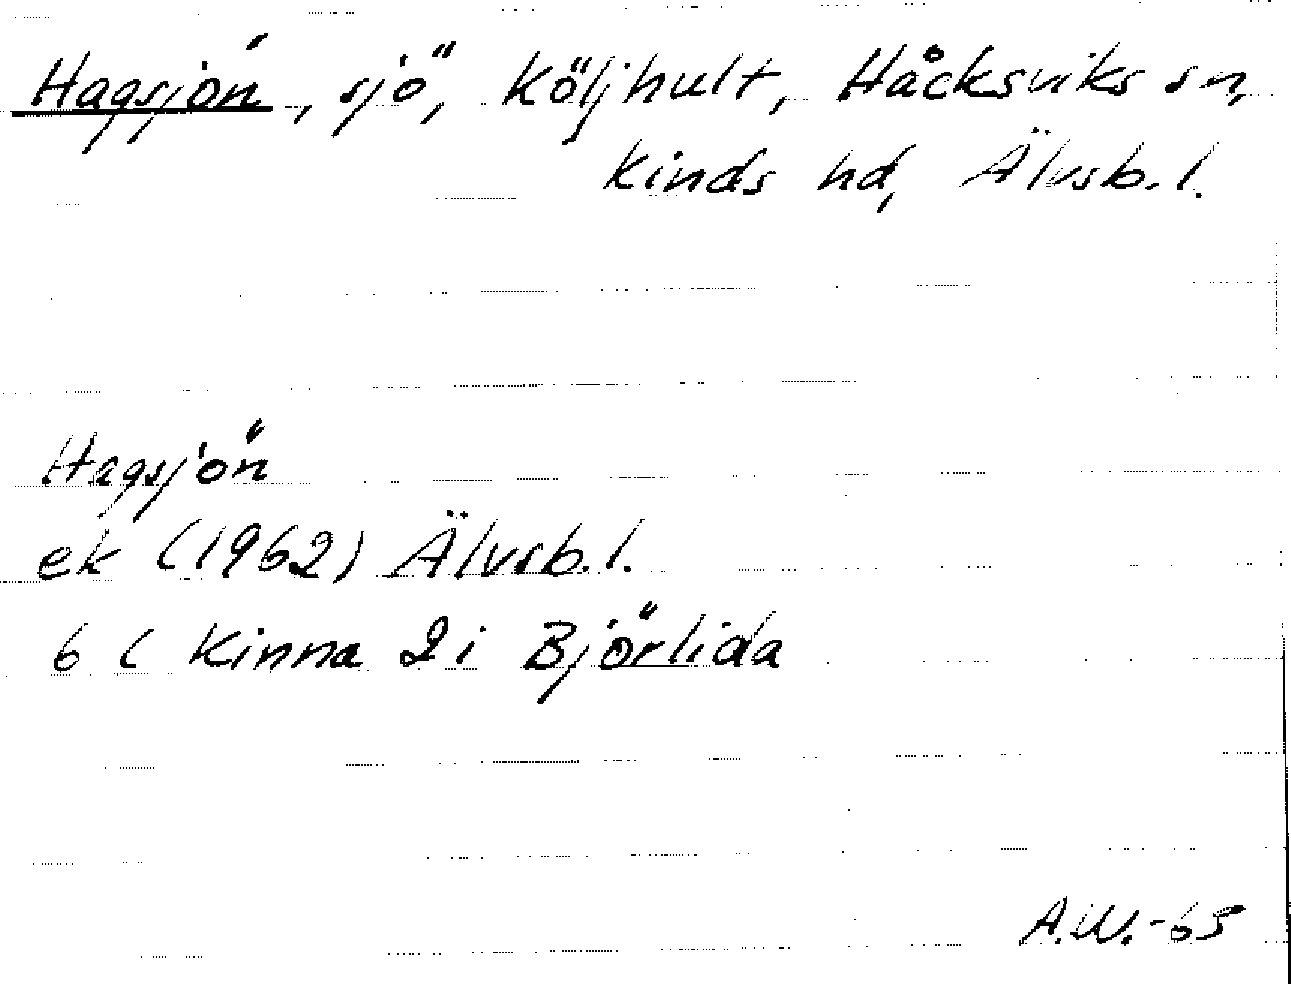 Hagsjön, sjö, Köljhult, Håcksviks sn,
Kinds hd, Älvsb. l.
Hagsjön
ek (1962) Älvsb. l.
6 C Kinna 2 i Björlida
A.W.-65